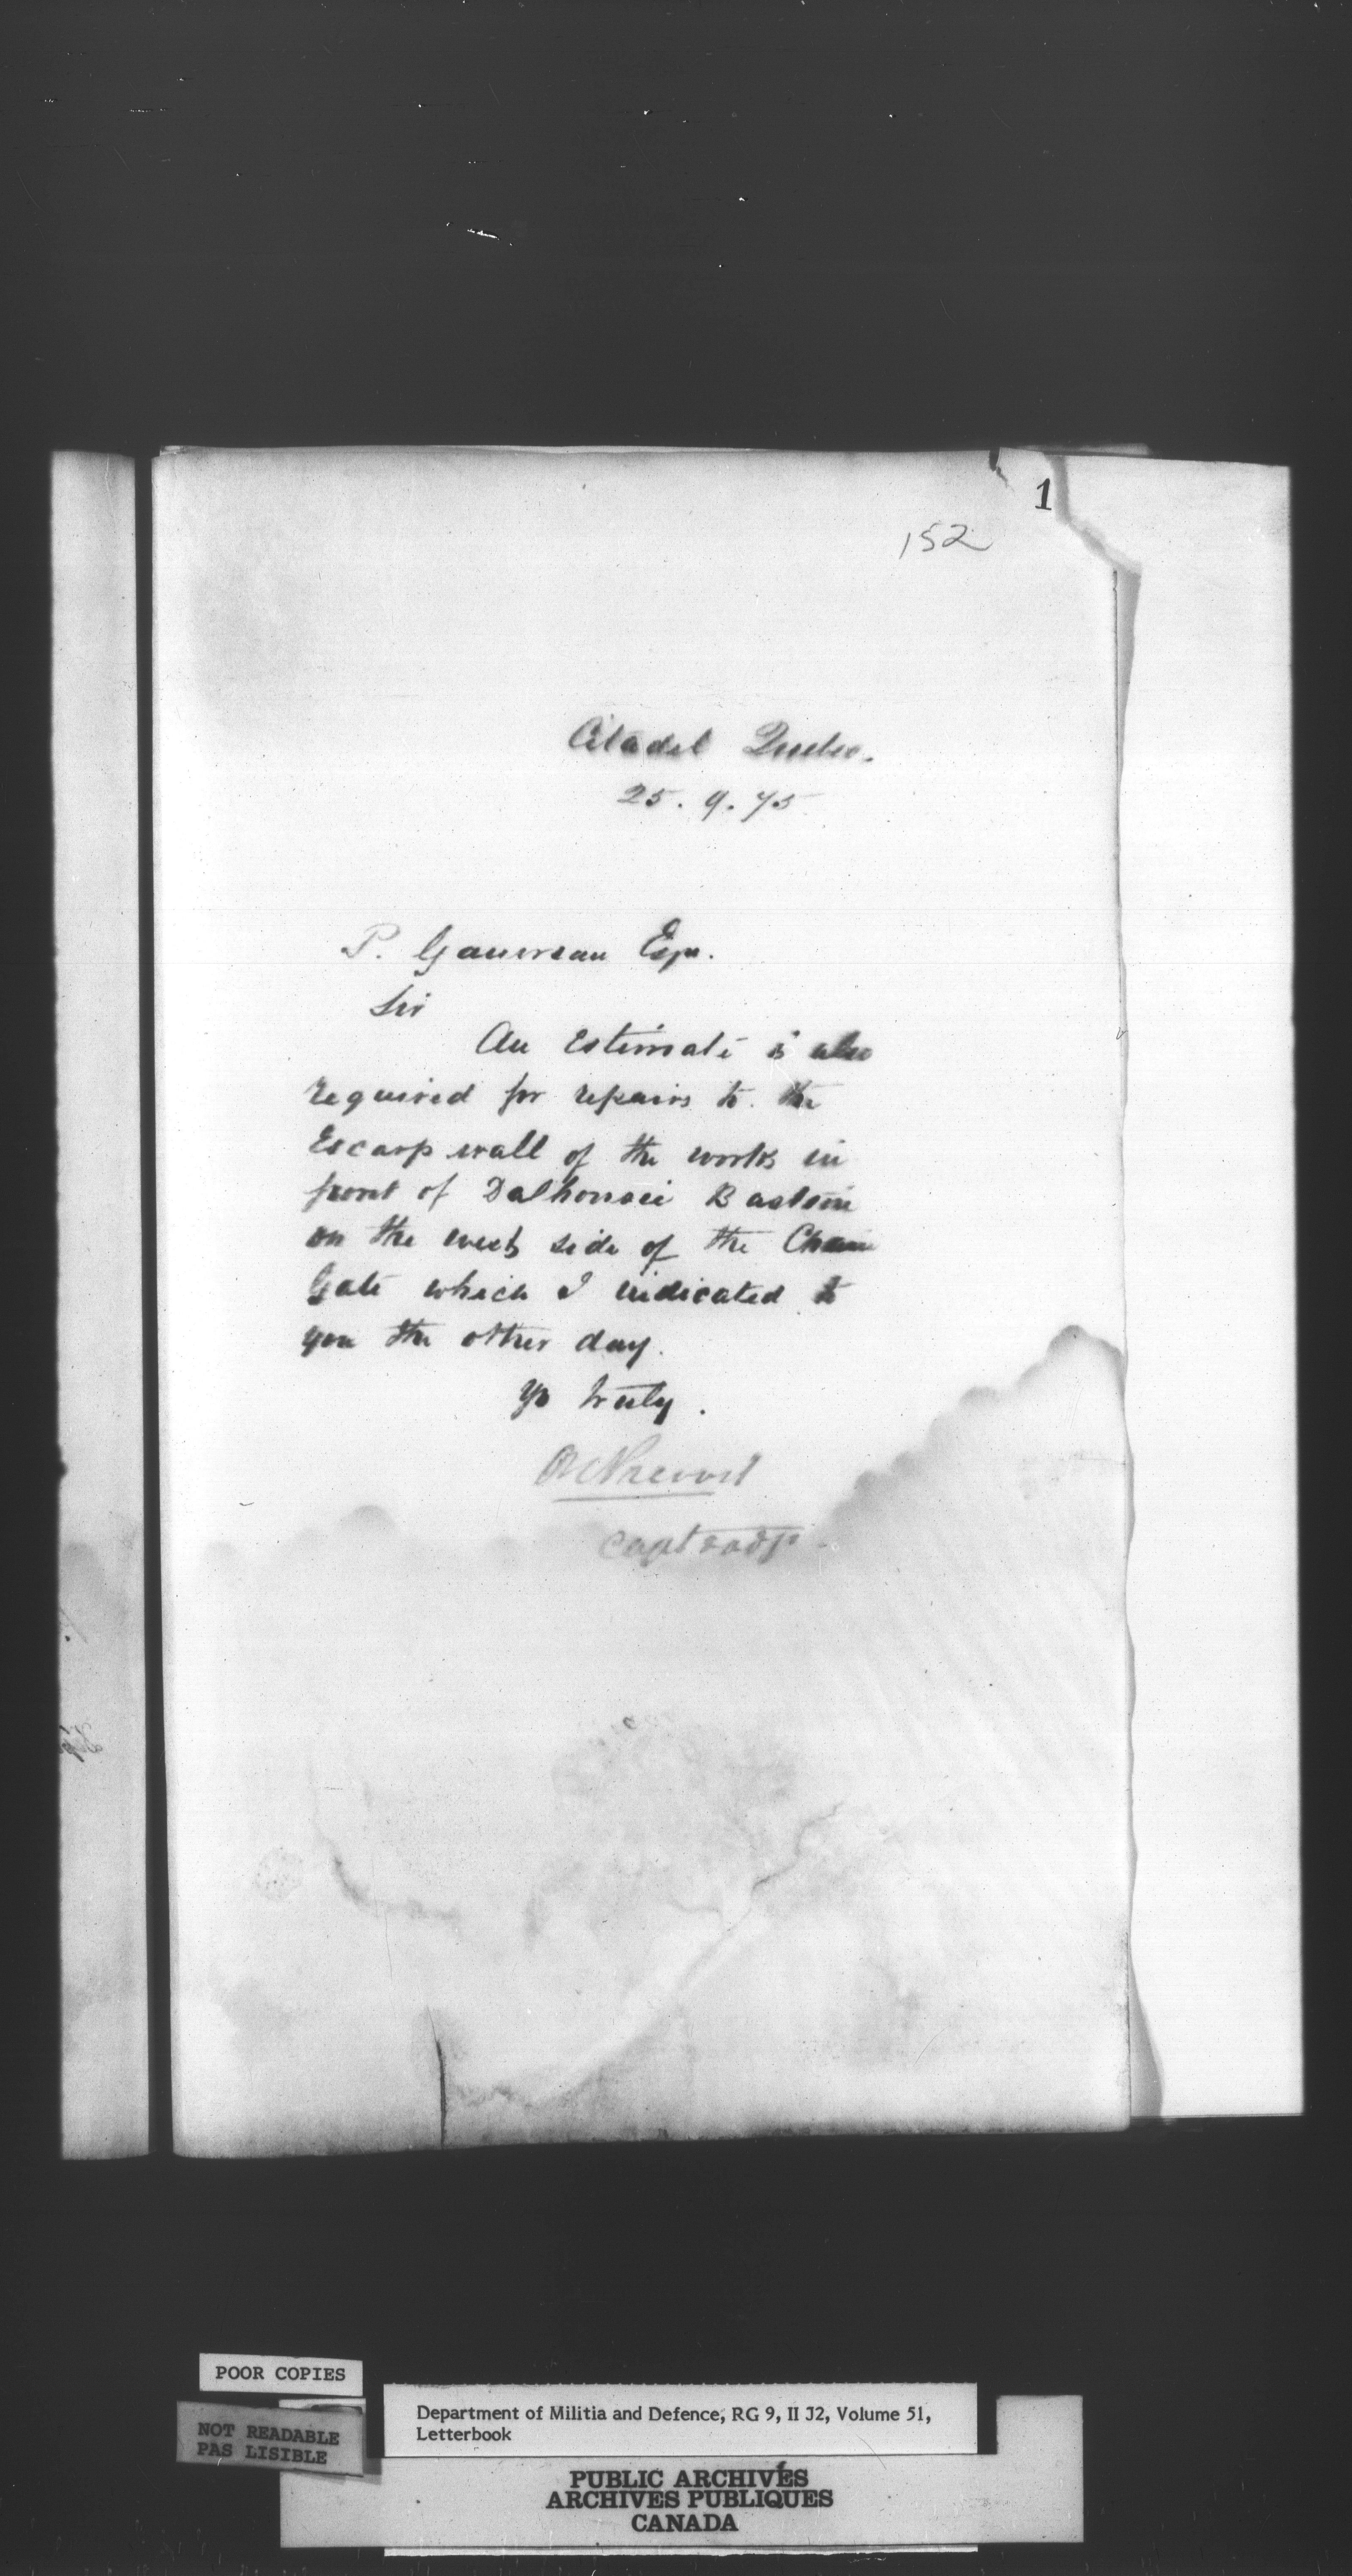 1
152
Citadel Quebec.
25. 9. 75
P. Gauvreau Esqr.
Sir
An Estimate is also
required for repairs to the
Escarp wall of the works in
front of Dalhousie Bastion
on the west side of the Chain
Gate which I indicated to
you the other day.
Yrs truly.
Capt
POOR COPIES
NOT READABLE
PAS LISIBLE
Department of Militia and Defence, RG 9, II J2, Volume 51,
Letterbook
PUBLIC ARCHIVES
ARCHIVES PUBLIQUES
CANADA